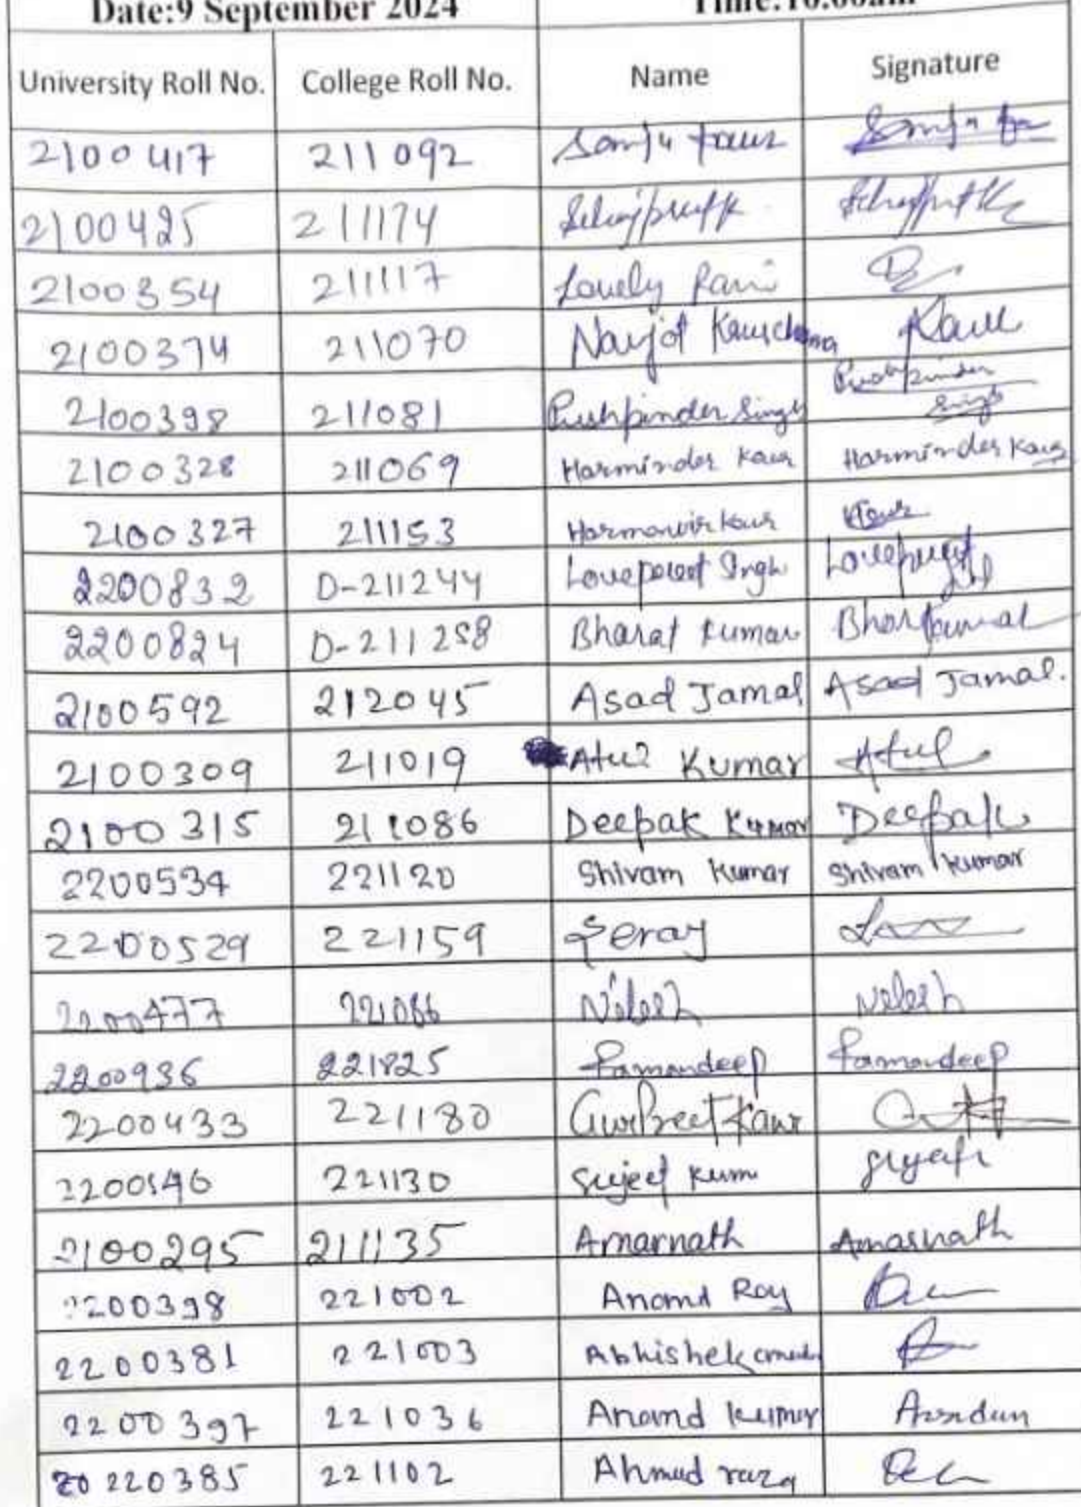 Date:9 September 2024 Time:10:00am
University Roll No. College Roll No. Name Signature
2100417 211092 Sanju kaur Sanju
2100425 211174
2100354 211117 Lovely Rani
2100374 211070 Navjot Kaur Kaur
2100398 211081 Pushpinder Singh Pushpinder Singh
2100328 211069 Harminder Kaur Harminder Kaur
2100327 211153 Harmanvir kaur Kaur
2200832 D-211244 Lovepreet Singh Lovepreet
2200824 D-211258 Bharat kumar
2100592 212045 Asad Jamal Asad Jamal.
2100309 211019 Atul Kumar Atul
2100315 211086 Deepak Kumar Deepak
2200534 221120 Shivam Kumar Shivam Kumar
2200529 221159
2200477 221086 Nilesh Nilesh
2200936 221825 Ramandeep Ramandeep
2200433 221180 GurPreet Kaur
2200546 221130 Sujeet Kum
2100295 211135 Amarnath Amarnath
2200398 221002 Anand Roy
2200381 221003 Abhishek
2200397 221036 Anand kumar
220385 221102 Ahmad raza